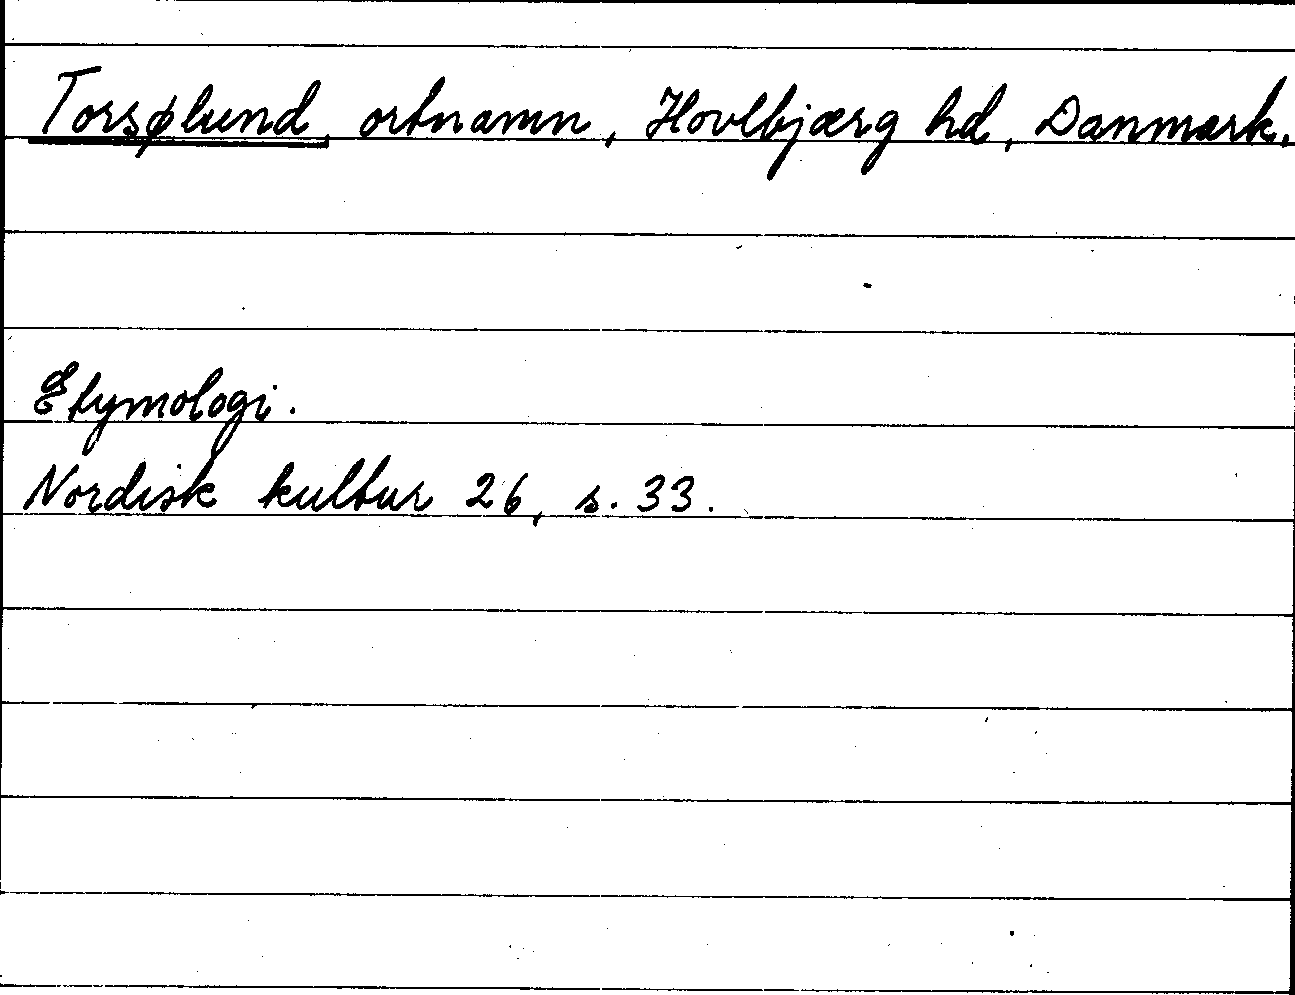 Torsølund, ortnamn, Hovlbjærg hd, Danmark.
Etymologi.
Nordisk kultur 26, s. 33.